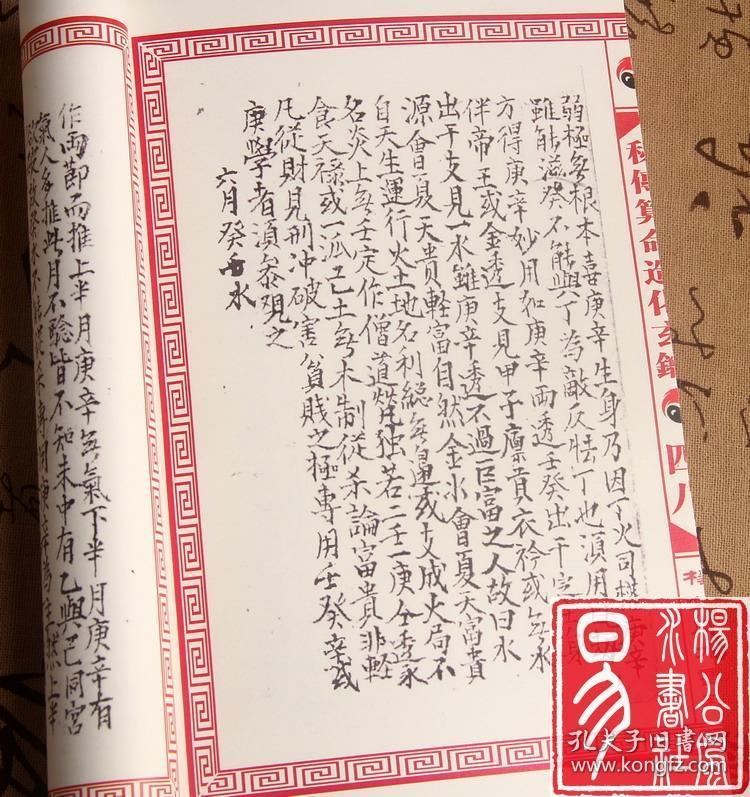 秘傳算命造化玄鑰
四八
弱極無根本喜庚辛生身乃因丁火司權庚辛
雖能滋癸不能與丁為敵反怯丁也須用
方得庚辛妙用如庚辛兩透壬癸出干定
伴帝王或金透支見甲子廪貢衣衿或無水
出干支見一水雖庚辛透不過一巨富之人故曰水
源會夏天貴輕富自然金水會夏天富貴
自天生運行火土地名利總無邊或支成火局不
名炎上無壬定作僧道煢独若二壬一庚全透永
食天禄或一派己土無木制從杀論富貴非輕
凡從財見刑冲破害貧賎之極專用壬癸辛或
庚學者須叅观之
六月癸水
作両節而推上半月庚辛無氣下半月庚辛有
氣人多推此月不驗皆不知未中有乙與己同宮
楊公風水書社
易
孔夫子旧書网
www.kongfz.com